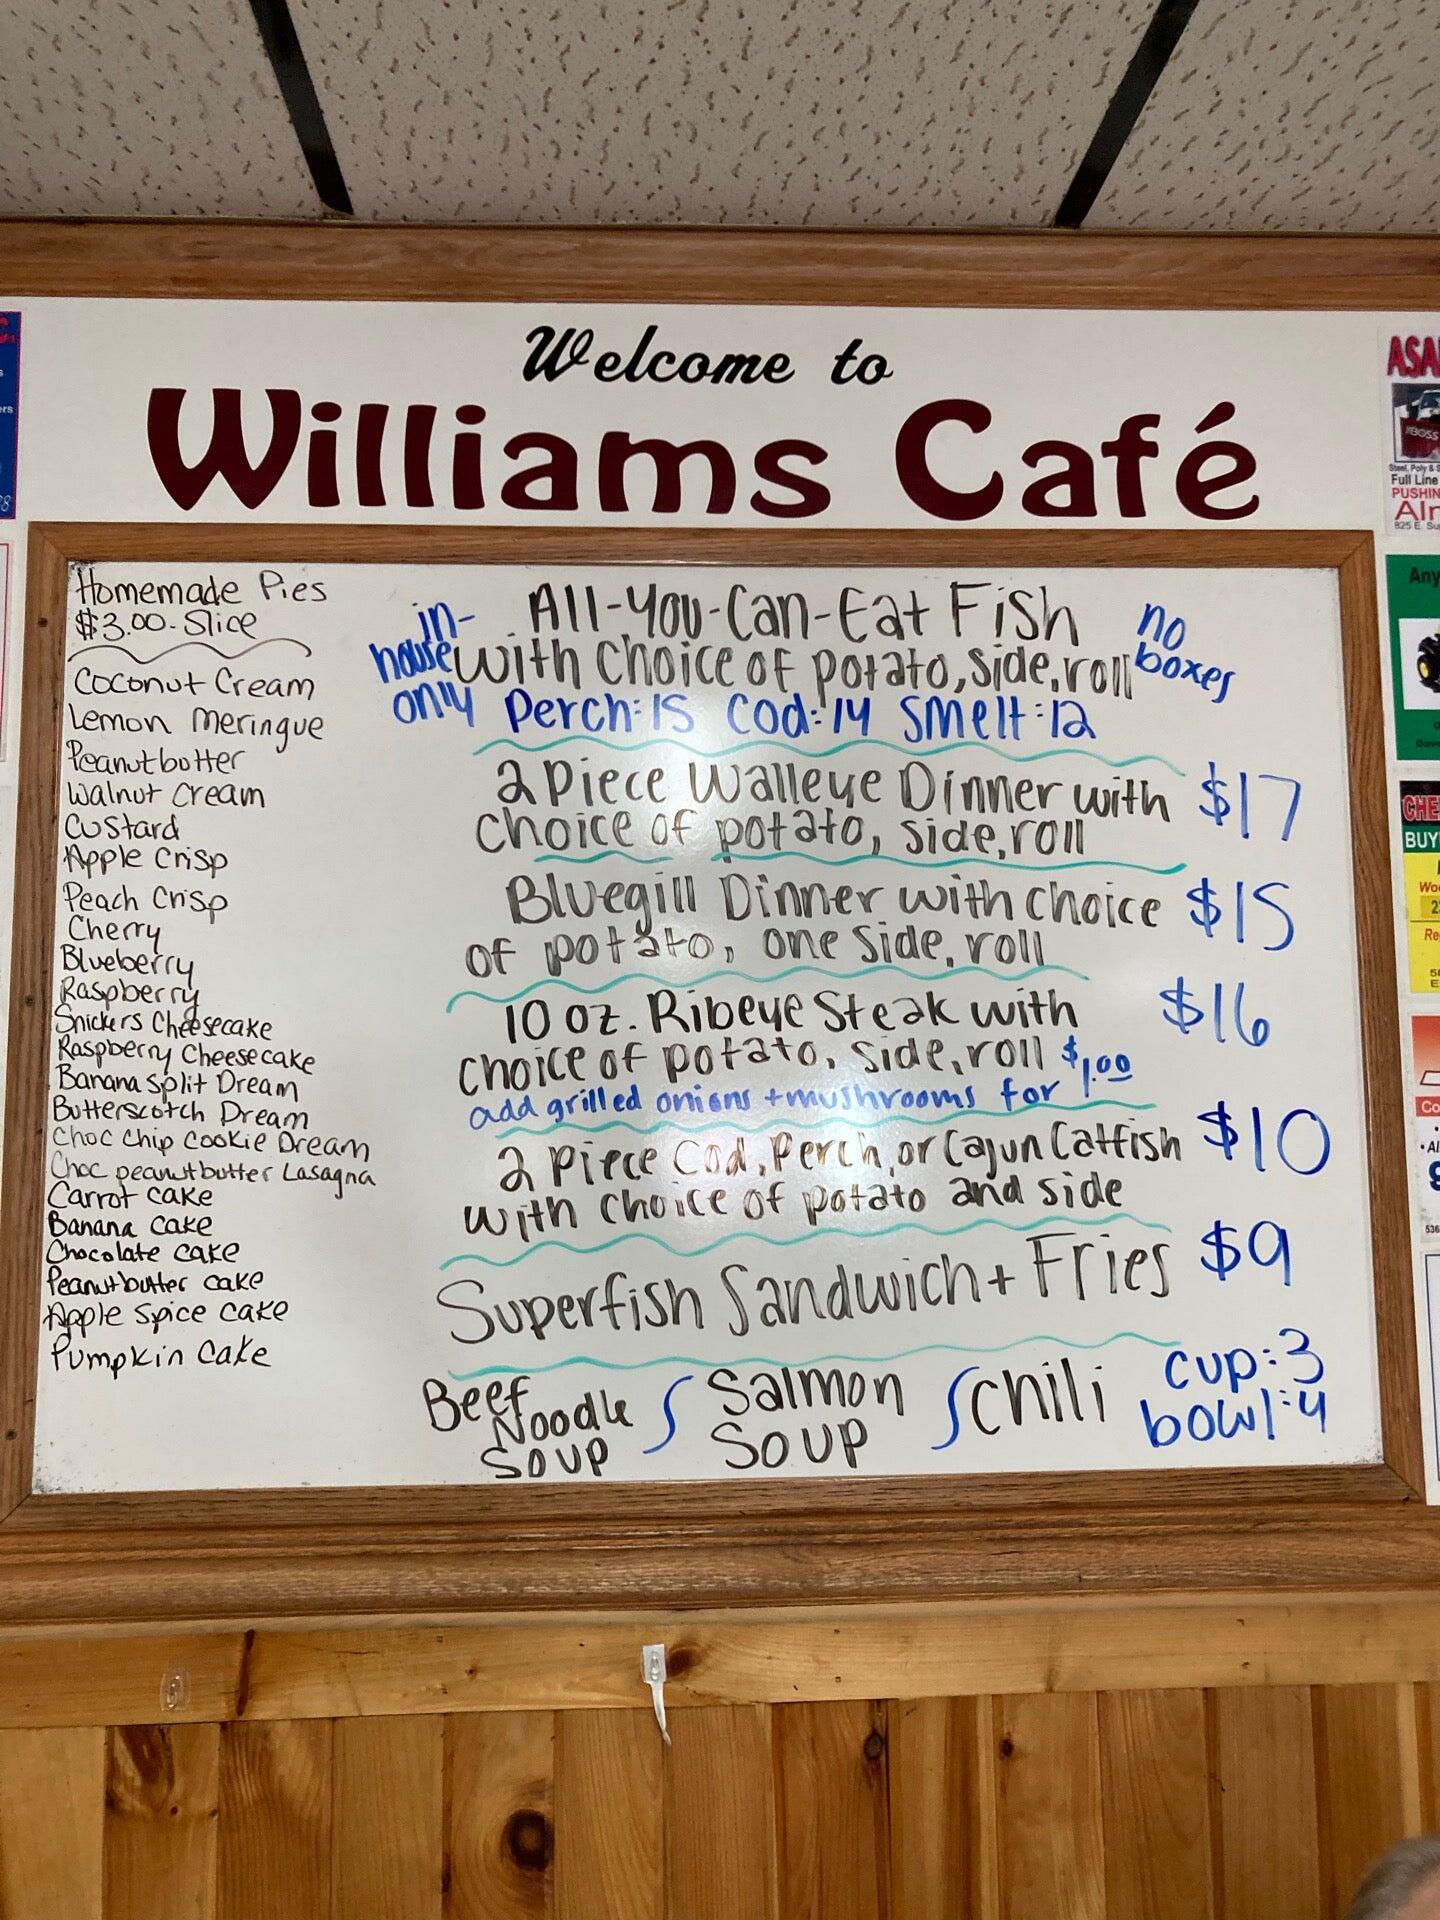 Welcome to
Williams Café
Homemade Pies
$3.00-Slice
Coconut Cream
Lemon Meringue
Peanutbutter
Walnut Cream
Custard
Apple Crisp
Peach Crisp
Cherry
Blueberry
Raspberry
Snickers Cheesecake
Raspberry Cheesecake
Banana Split Dream
Butterscotch Dream
Choc Chip Cookie Dream
Choc peanutbutter Lasagna
Carrot Cake
Banana Cake
Chocolate Cake
Peanutbutter Cake
Apple Spice Cake
Pumpkin Cake
in-house only
All-You-Can-Eat Fish
with choice of potato, side, roll
no boxes
Perch:15 Cod:14 Smelt:12
2 Piece Walleye Dinner with $17
choice of potato, side, roll
Bluegill Dinner with choice $15
of potato, one side, roll
10 oz. Ribeye Steak with $16
choice of potato, side, roll
add grilled onions + mushrooms for $1.00
2 Piece Cod, Perch, or Cajun Catfish $10
with choice of potato and side
Superfish Sandwich + Fries $9
Beef Noodle Soup
Salmon Soup
Chili
cup:3
bowl:4
ASA
BOSS
Steel, Poly & S
Full Line
PUSHIN
825 E. Su
Any
CHE
BUY
Woo
Re
Co
536